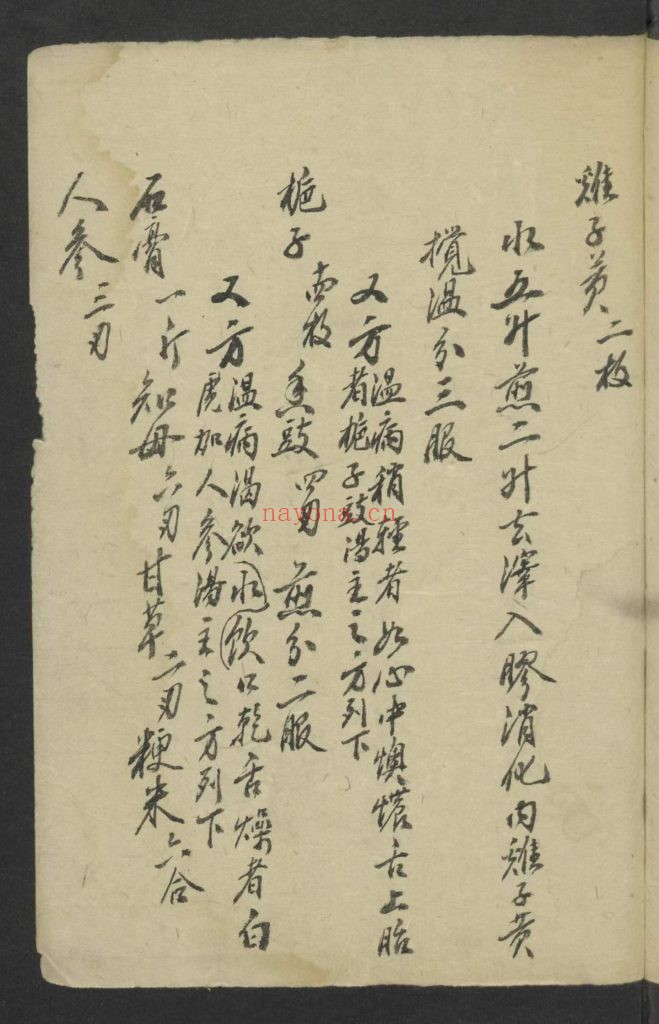 雞子黄 二枚
水五升煎二升去滓入膠消化內雞子黄
攪温分三服
又方 温病稍軽者如心中燠憹舌上胎
者梔子豉湯主之方列下
梔子 十四枚 香豉 四刃 煎分二服
又方 温病渴欲水飲口乾舌燥者白
虎加人参湯主之方列下
石膏 一斤 知母 六刃 甘草 二刃 粳米 六合
人参 三刃
nayona.cn